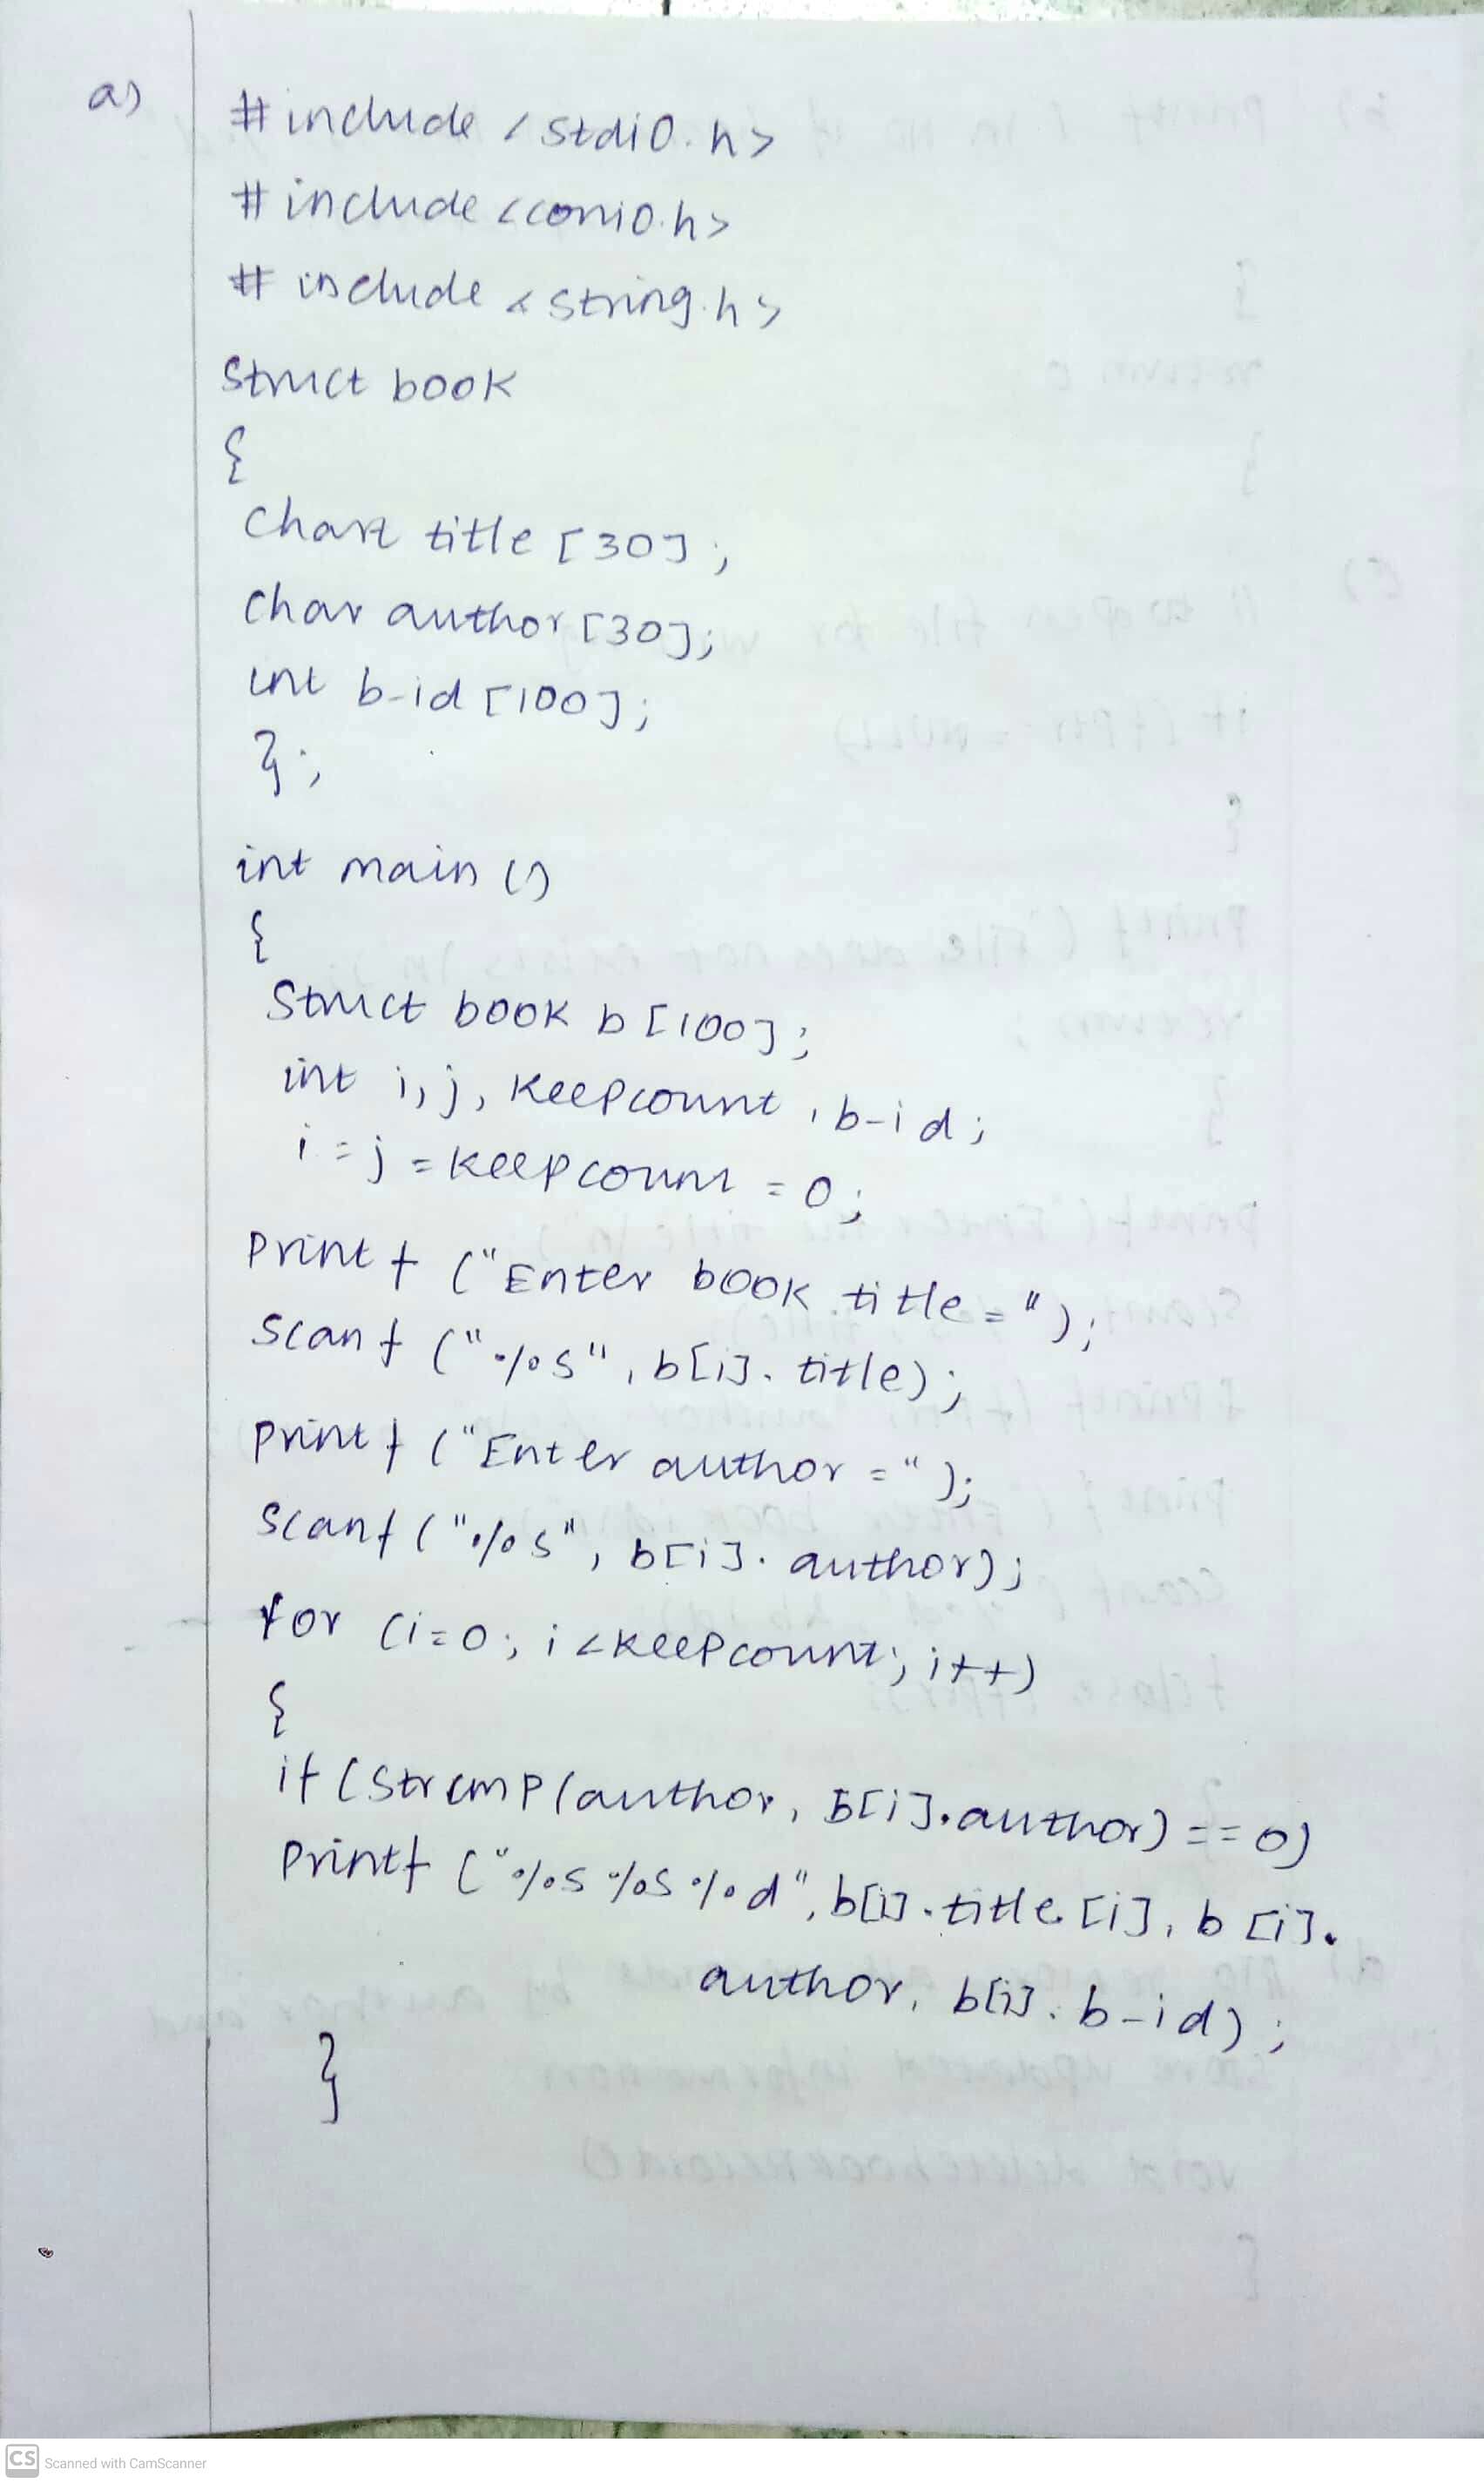 a)
#include <stdio.h>
#include <conio.h>
#include <string.h>
struct book
{
char title [30];
char author [30];
int b-id [100];
};
int main ()
{
struct book b [100];
int i, j, keepcount, b-id;
i = j = keepcount = 0;
printf ("Enter book title = ");
scanf ("%s", b[i]. title);
printf ("Enter author = ");
scanf ("%s", b[i]. author);
for (i=0; i <keepcount; i++)
{
if (strcmp (author, b[i].author) == 0)
printf ("%s %s %d", b[i].title [i], b [i].
author, b[i]. b-id);
}
CS Scanned with CamScanner